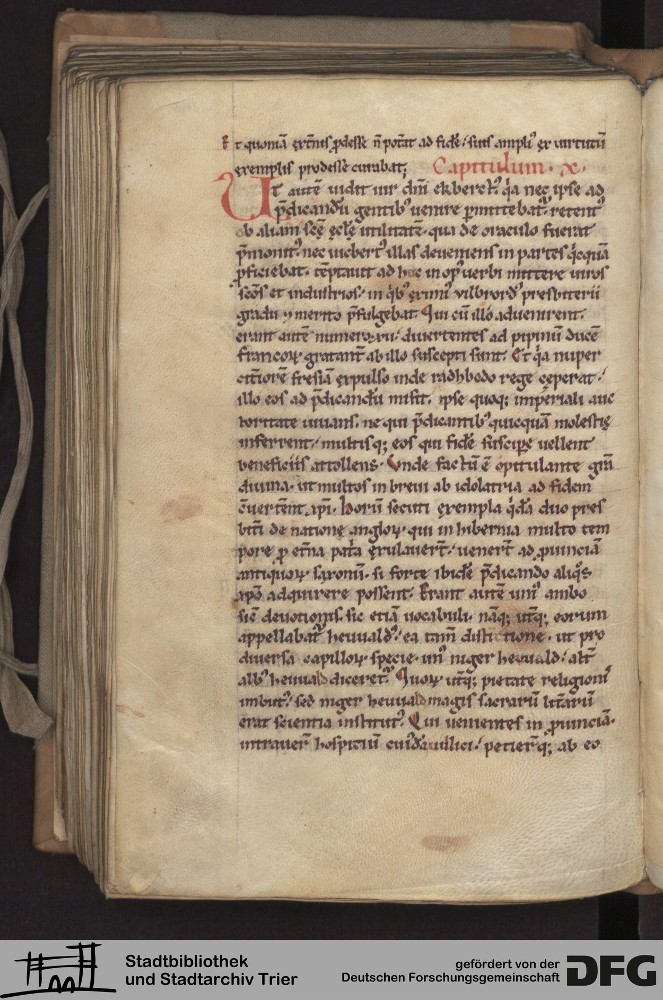 Et quoniā exteͬnis ꝓdesse n̄ poteͬat ad fidē / suis ampliꝰ ex uirtutū
exemplis prodesse curabat;
Capitulum · x ·
Ut autē uidit uir dn̄i ekbertꝰ q̇a nec ipse ad
p̄dicandū gentibꝰ uenire ꝑmittebatꝰ. retentꝰ
ob aliam scę̄ ęcłę utilitatē. qua de oraculo fuerat
p̄monitꝰ. nec uicbertꝰ illas deueniens in partes q̇cquā
ꝓficiebat. tēptauit ad huc in opꝰ uerbi mittere uiros
sc̄os et industrios / in q̇bꝰ eximiꝰ vilbrordꝰ presbiterii
gradu ⁊ merito p̄fulgebat. Qui cū illo aduenirent.
erant autē numero xii / diuertentes ad pipinū ducē
francoꝝ gratanteͬ ab illo suscepti sunt. Et q̇a nuper
citeͬiorē fresiā expulso inde radhbedo rege ceperat /
illo eos ad p̄dicandū misit. ipse quoq; imperiali auc
toritate iuuans. ne qui p̄dicantibꝰ quicquā molestię
inferrent / multisq; eos qui fidē suscipe uellent
beneficiis attollens. Vnde factū ē opitulante gr̄a
diuina. ut multos in breui ab idolatria ad fidem
ꝯuerteͬent xp̄i. Horū secuti exempla q̇dā duo pres
bit̄i de natione angloꝝ. qui in hibernia multo tem
pore ꝓ et̄na pat̄a exulauer̄t. uener̄t ad ꝓuinciā
antiquoꝝ saxonū. si forte ibidē p̄dicando aliq̇s
xp̄o adquirere possent. Erant autē uniꝰ ambo
sic̄ deuotionis. sic etiā uocabuli. nāq; ut̄q; eorum
appellabat̄ heuualdꝰ / ea tam̄ distictione. ut pro
diuersa capilloꝝ specie. unꝰ niger heuuald. alt̄
albꝰ heuuald diceretꝰ. Quoꝝ ut̄q; pietate religionis
imbutꝰ. sed niger heuuald magis sacrarū litt̄arū
erat scientia institutꝰ. Qui uenientes in ꝓuinciā.
intrauer̄ hospiciū cuiꝰdā uillici / petier̄q; ab eo
Stadtbibliothek
und Stadtarchiv Trier
gefördert von der
Deutschen Forschungsgemeinschaft
DFG